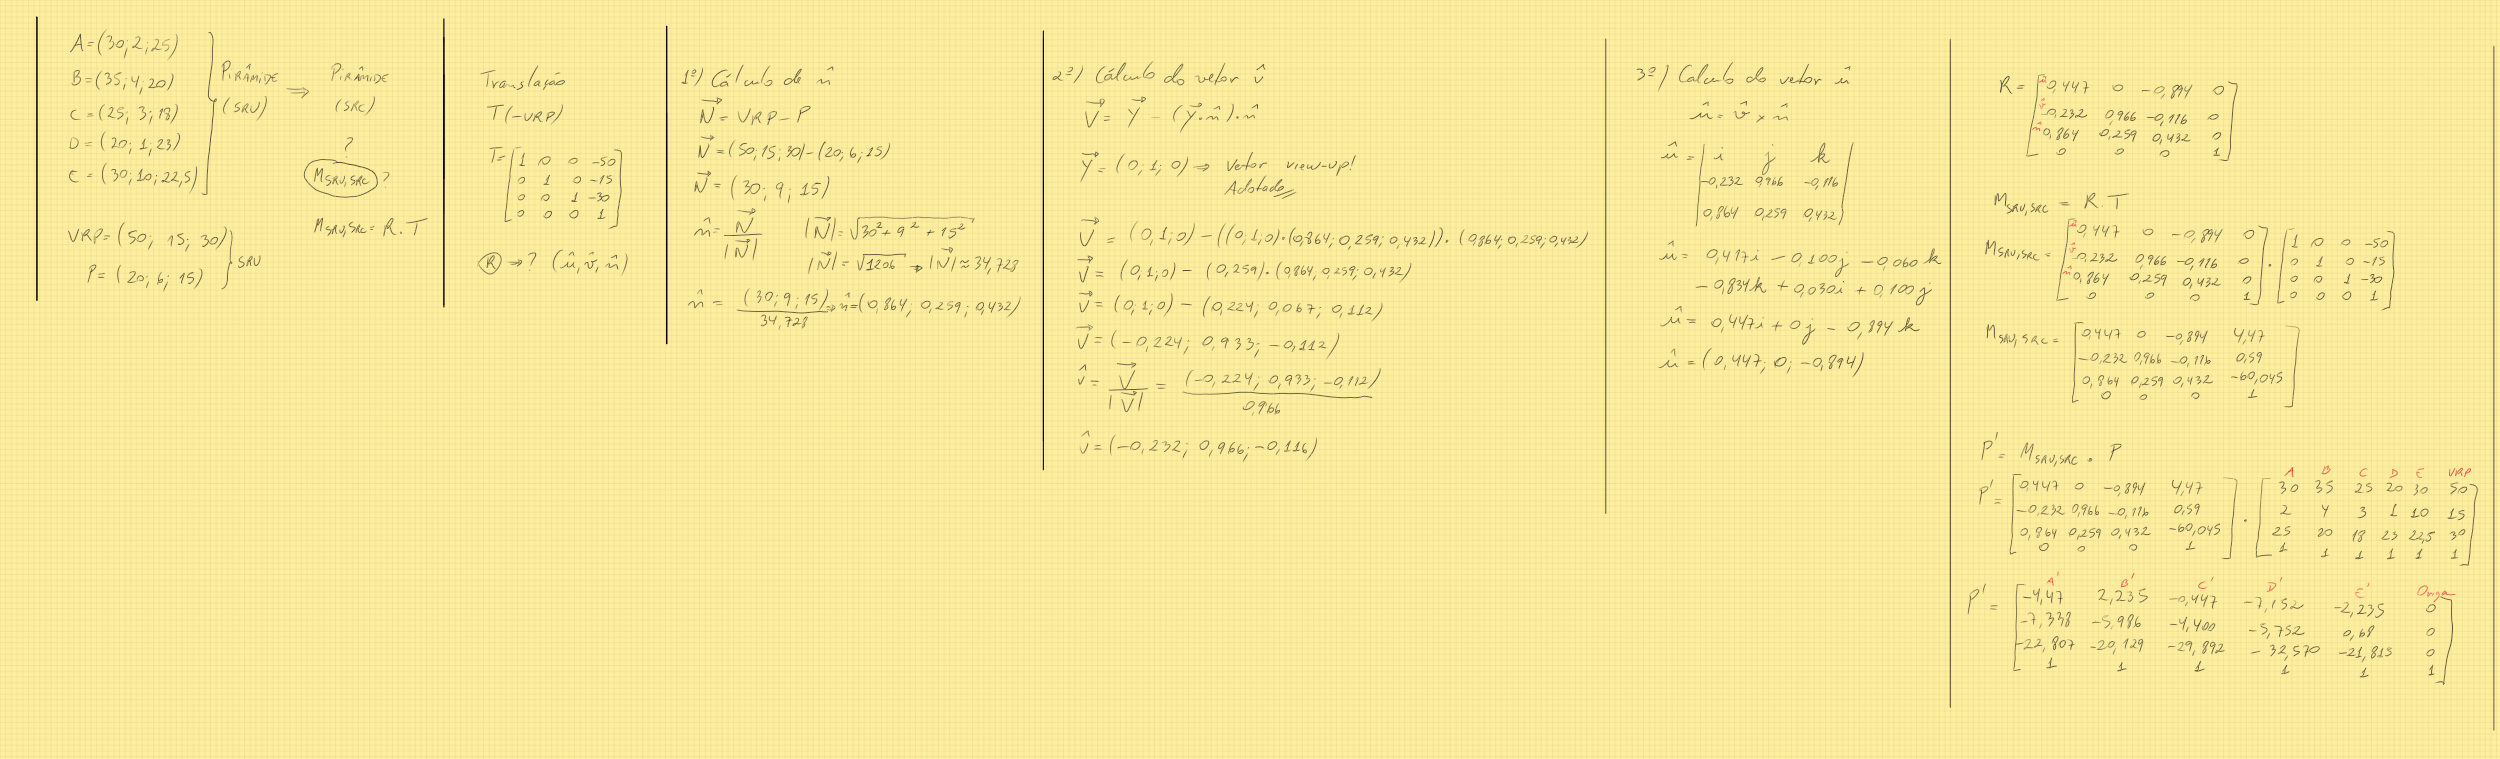 A=(30;2;25)
B=(35;4;20)
C=(25; 3;18)
D=(20;1;23)
E=(30;10;22,5)
PIRÂMIDE
(SRU)
⇒
PIRÂMIDE
(SRC)
?
M_SRU,SRC ?
M_SRU,SRC = R.T
VRP=(50; 15; 30)
P=(20; 6; 15)
SRU
Translação
T(-VRP)
T= [1 0 0 -50
0 1 0 -15
0 0 1 -30
0 0 0 1]
R ⇒ ? (û, v̂, n̂)
1º) Cálculo de n̂
N⃗ = VRP - P
N⃗ = (50;15;30)-(20;6;15)
N⃗ = (30; 9; 15)
n̂ = N⃗ / |N⃗|
|N⃗| = √30²+9²+15²
|N⃗| = √1206 ⇒ |N⃗| ≈ 34,728
n̂ = (30;9;15) / 34,728 ⇒ n̂=(0,864; 0,259; 0,432)
2º) Cálculo do vetor v̂
V⃗ = Y⃗ - (Y⃗.n̂).n̂
Y⃗ = (0; 1; 0) ⇒ Vetor view-up!
Adotado
V⃗ = (0,1;0)-((0,1;0).(0,864; 0,259; 0,432)).(0,864; 0,259; 0,432)
V⃗ = (0,1;0) - (0,259).(0,864; 0,259; 0,432)
V⃗ = (0;1;0) - (0,224; 0,067; 0,112)
V⃗ = (-0,224; 0,933; -0,112)
v̂ = V⃗ / |V⃗| = (-0,224; 0,933; -0,112) / 0,966
v̂ = (-0,232; 0,966; -0,116)
3º) Calculo do vetor û
û = v̂ × n̂
û = |i j k
-0,232 0,966 -0,116
0,864 0,259 0,432|
û = 0,417i - 0,100j - 0,060k
- 0,834k + 0,030i + 0,100j
û = 0,447i + 0j - 0,894k
û = (0,447; 0; -0,894)
R = [û 0,447 0 -0,894 0
v̂ -0,232 0,966 -0,116 0
n̂ 0,864 0,259 0,432 0
0 0 0 1]
M_SRU,SRC = R.T
M_SRU,SRC = [û 0,447 0 -0,894 0
v̂ -0,232 0,966 -0,116 0
n̂ 0,864 0,259 0,432 0
0 0 0 1] . [1 0 0 -50
0 1 0 -15
0 0 1 -30
0 0 0 1]
M_SRU,SRC = [0,447 0 -0,894 4,47
-0,232 0,966 -0,116 0,59
0,864 0,259 0,432 -60,045
0 0 0 1]
P' = M_SRU,SRC . P
A B C D E VRP
P' = [0,447 0 -0,894 4,47
-0,232 0,966 -0,116 0,59
0,864 0,259 0,432 -60,045
0 0 0 1] . [30 35 25 20 30 50
2 4 3 1 10 15
25 20 18 23 22,5 30
1 1 1 1 1 1]
A' B' C' D' E' Origem
P' = [-4,47 2,235 -0,447 -7,152 -2,235 0
-7,338 -5,986 -4,400 -5,752 0,68 0
-22,807 -20,129 -29,892 -32,570 -21,815 0
1 1 1 1 1 1]